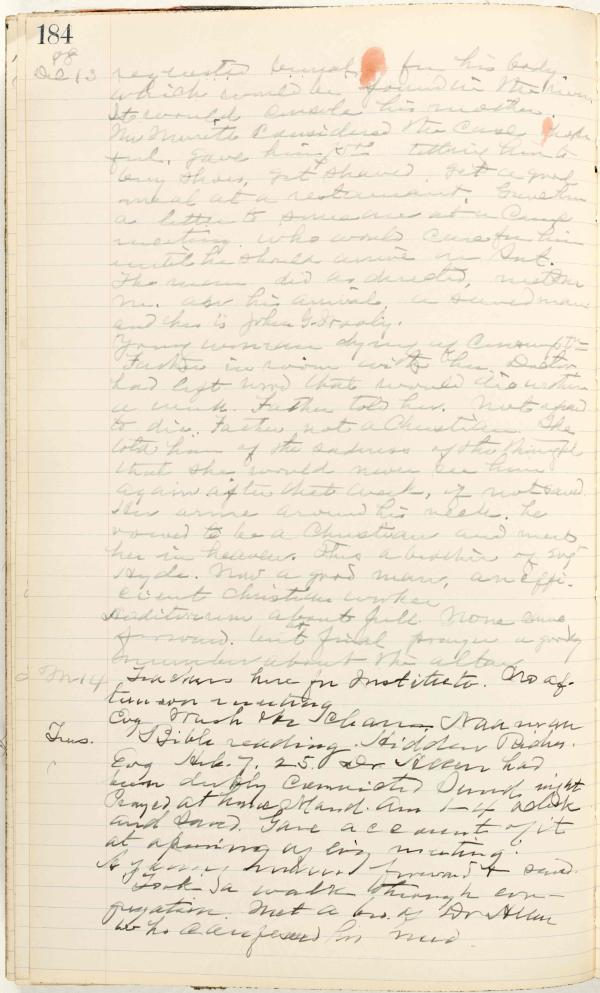 184
98
Dec 13 requested for his body
which would be found in the river
It would console his mother.
Mr considered the case
ful, gave him telling him to
buy shoes, get shaved, get a good
meal at a restaurant, Gave him
a letter to someone at a Camp
meeting who would care for him
until he should arrive on Sat.
The man did as directed, met
on his arrival, a saved man
and this is John G.
Young woman dying of
Father in room with her, Doctor
had left word that would die within
a week. Father told her. Not afraid
to die. Father not a Christian. She
told him of the sadness of the thought
that she would never see him
again after that week, if not saved.
Her arms around his neck. he
vowed to be a Christian and meet
her in heaven. This a brother of
Hyde. Now a good man, an effi-
cient Christian worker
Auditorium about full. None came
forward. but at final prayer a goodly
number about the altar
14 Teachers here for Institute. No af-
ternoon meeting
Evg Naaman
Tues. Bible reading. Hidden Riches.
Evg Heb. 7, 25. Dr Allen had
been deeply convicted Sund. night
Prayed at home Mond. Am 1-4 oclock
and saved. Gave account of it
at opening of Evg meeting.
forward & saved.
Took Ja walk through con-
gregation. Met a bro. of Dr Allen
who confessed his need